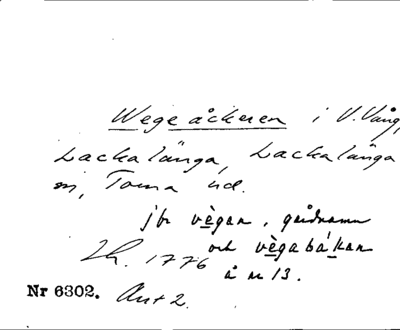 Wege åckeren i V. Vång,
Lackalänga, Lackalänga
sn, Torna hd.
jfr vègan, gårdnamn
och vègabákan
å nr 13.
Lh. 1776
Nr 6302. Ant 2.